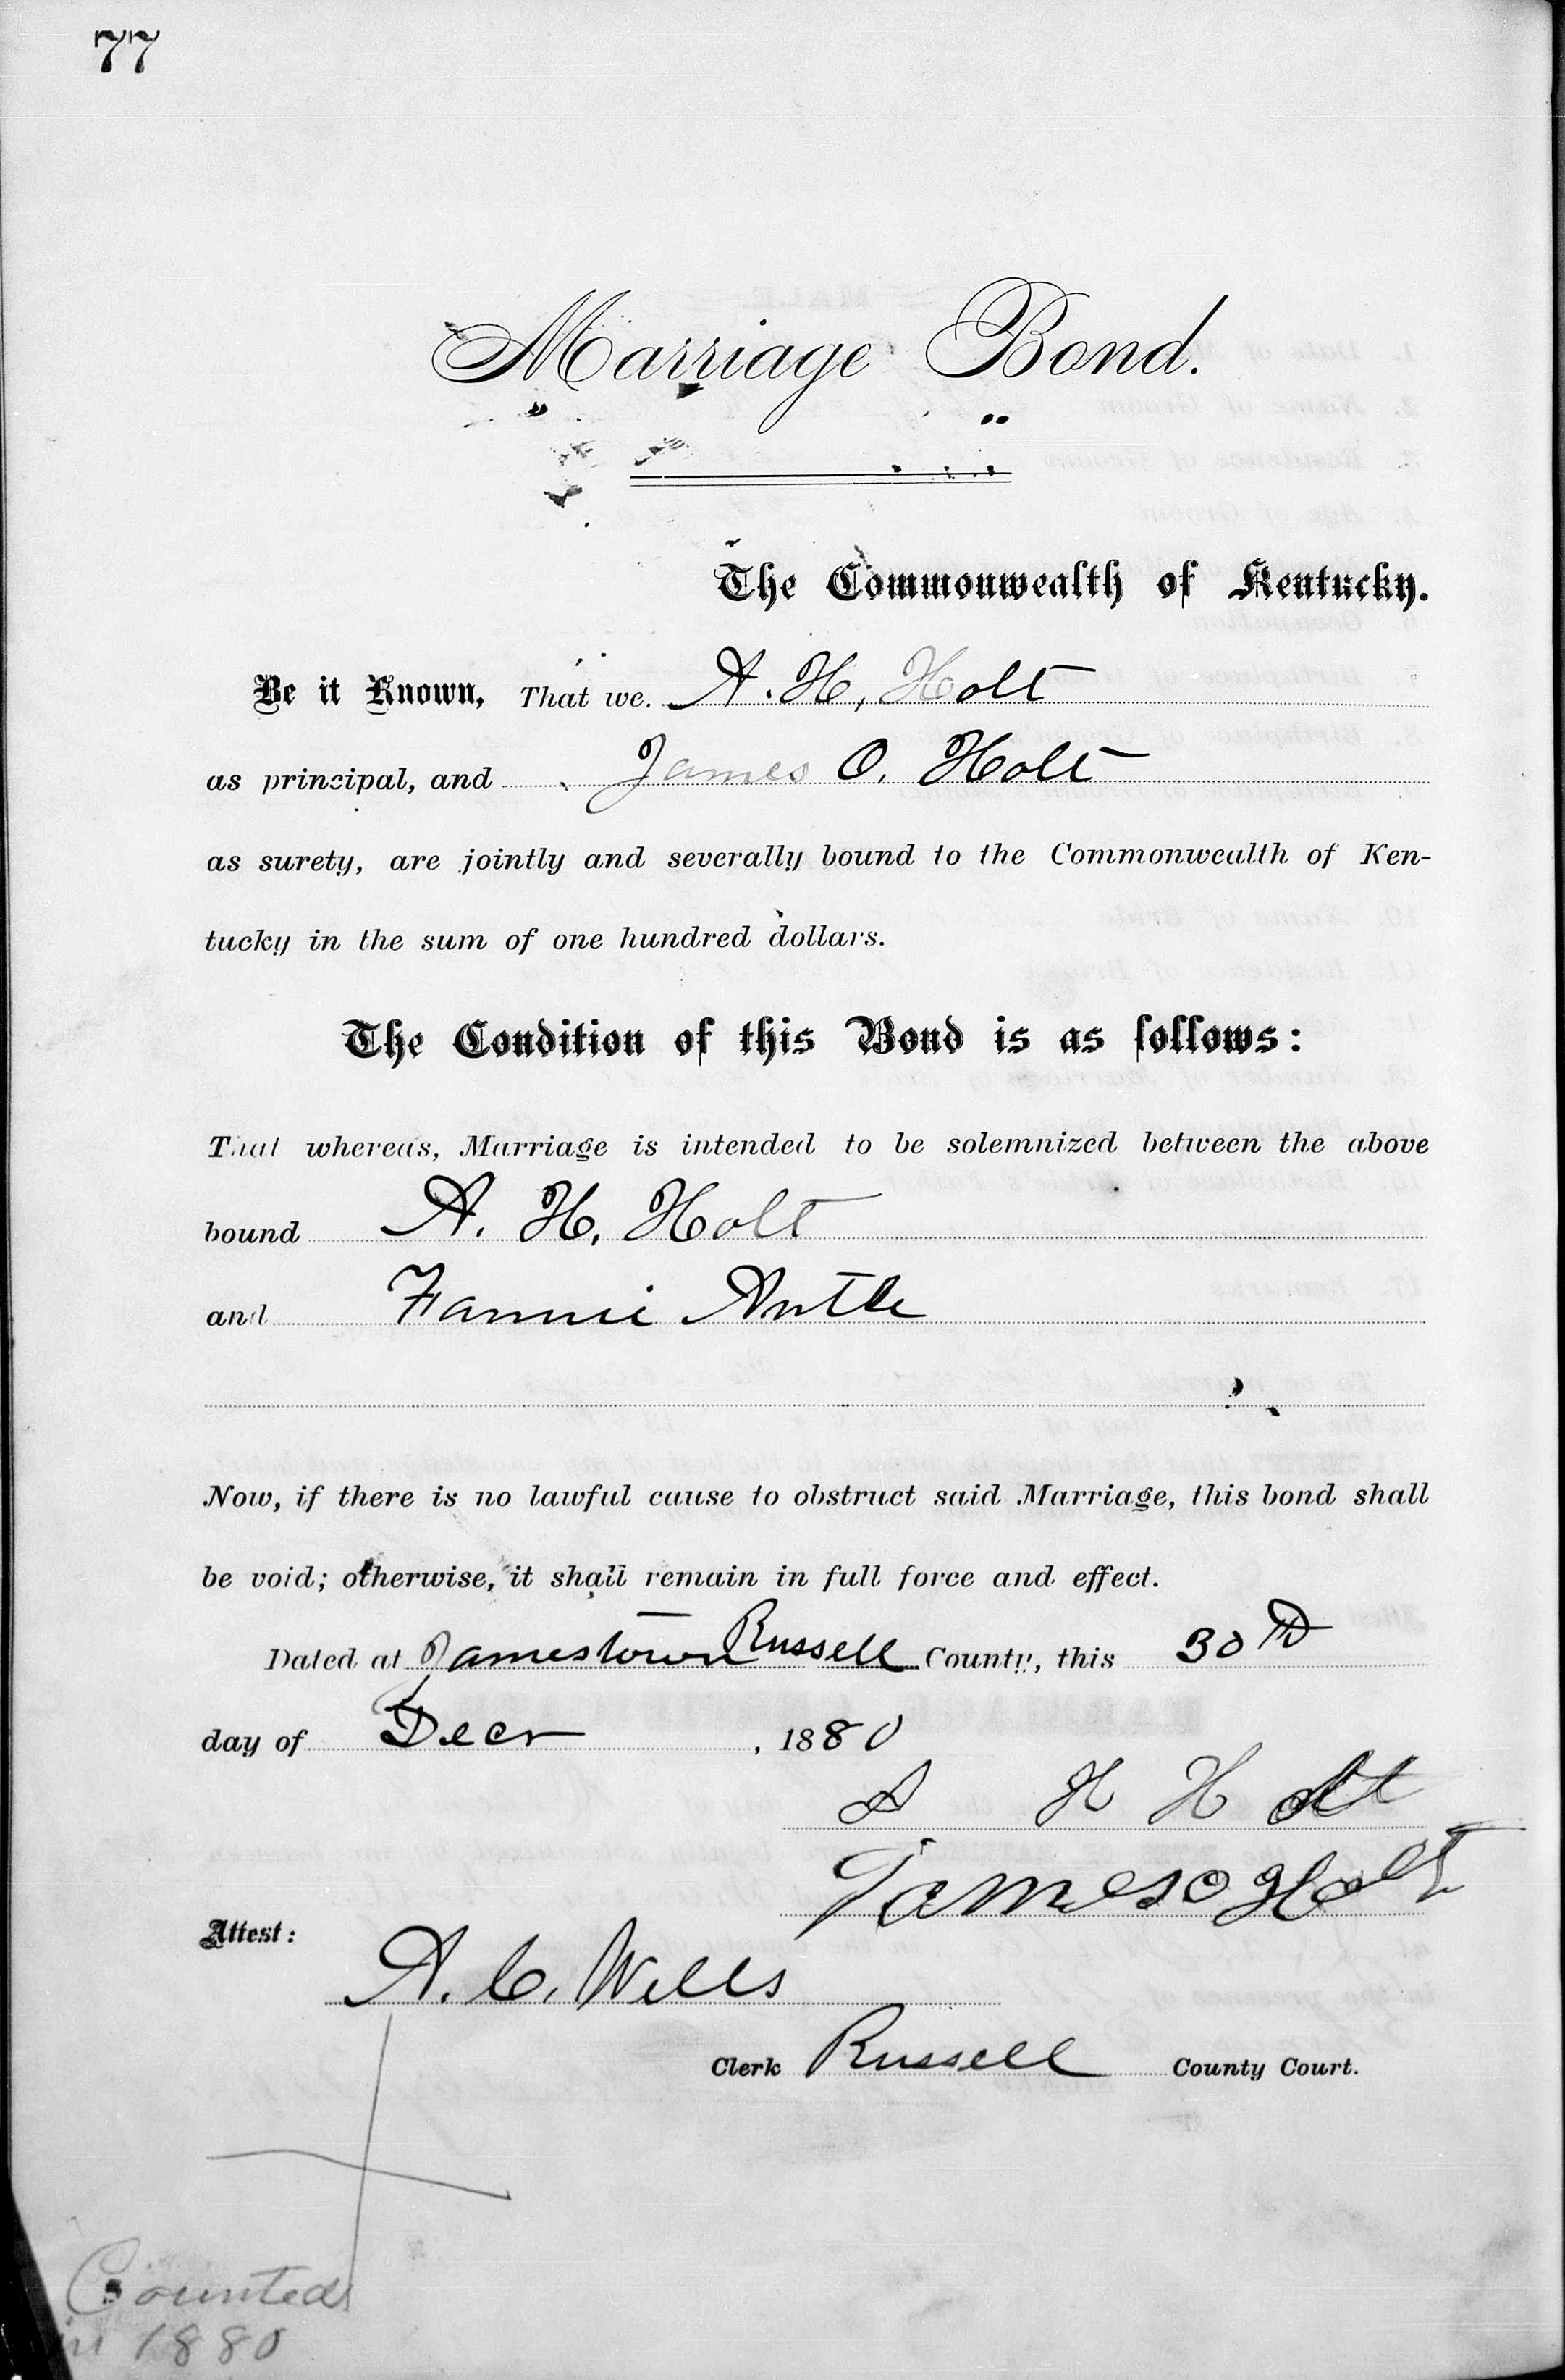 77
Marriage Bond.
The Commonwealth of Kentucky.
Be it Known, That we. A. H. Holt
as principal, and James O. Holt
as surety, are jointly and severally bound to the Commonwealth of Ken-
tucky in the sum of one hundred dollars.
The Condition of this Bond is as follows:
That whereas, Marriage is intended to be solemnized between the above
bound A. H. Holt
and Fannie Antle
Now, if there is no lawful cause to obstruct said Marriage, this bond shall
be void; otherwise, it shall remain in full force and effect.
Dated at Jamestown Russell County, this 30th
day of Decr, 1880
A H Holt
James O Holt
Attest:
A. C. Wells
Clerk Russell County Court.
Counted
in 1880